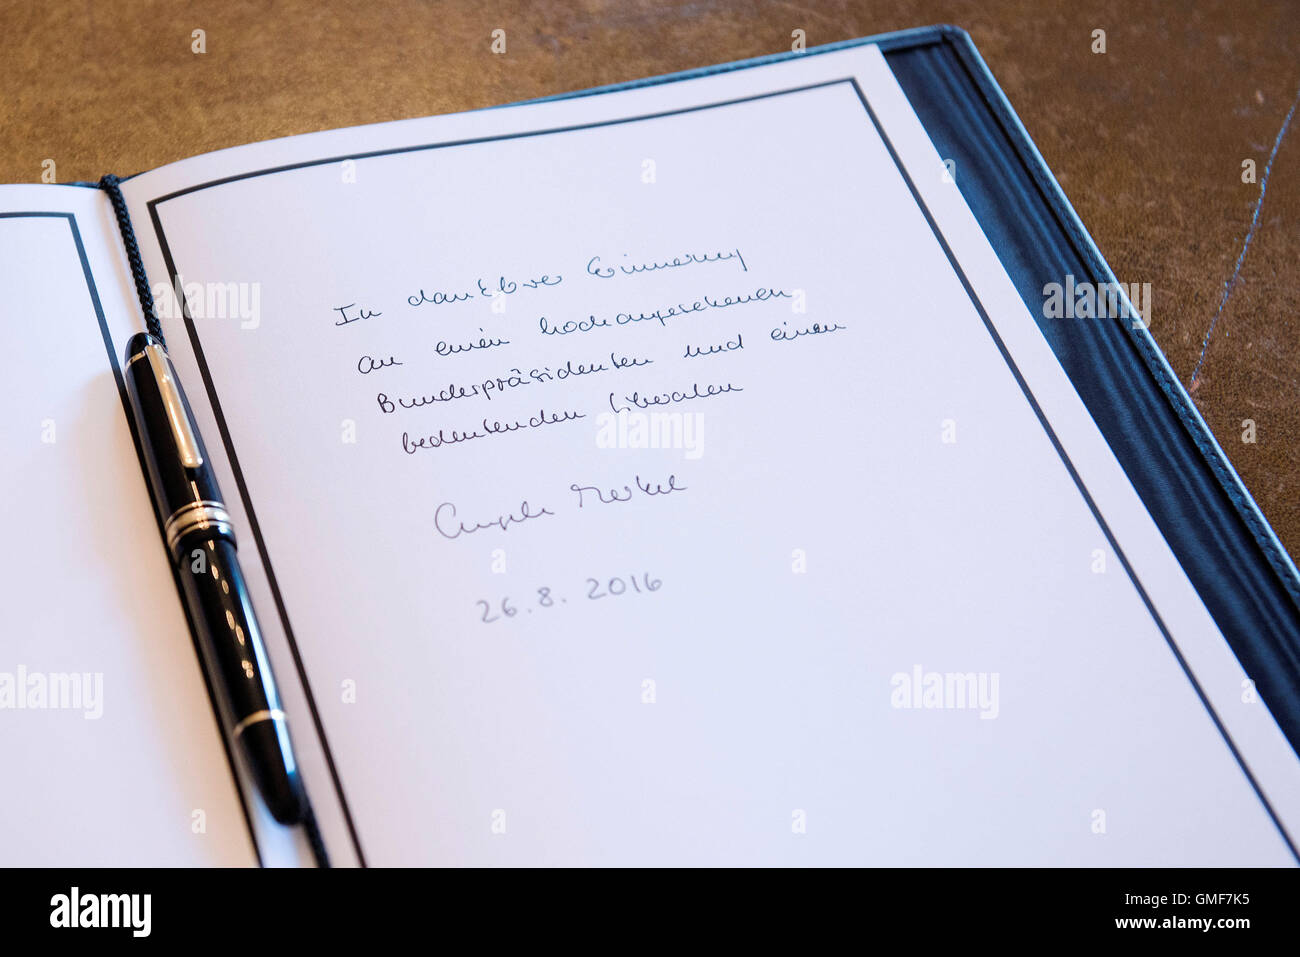 In dankbarer Erinnerung
an einen hochangesehenen
Bundespräsidenten und einen
bedeutenden Liberalen
Angela Merkel
26.8.2016
alamy stock photo
GMF7K5
www.alamy.com